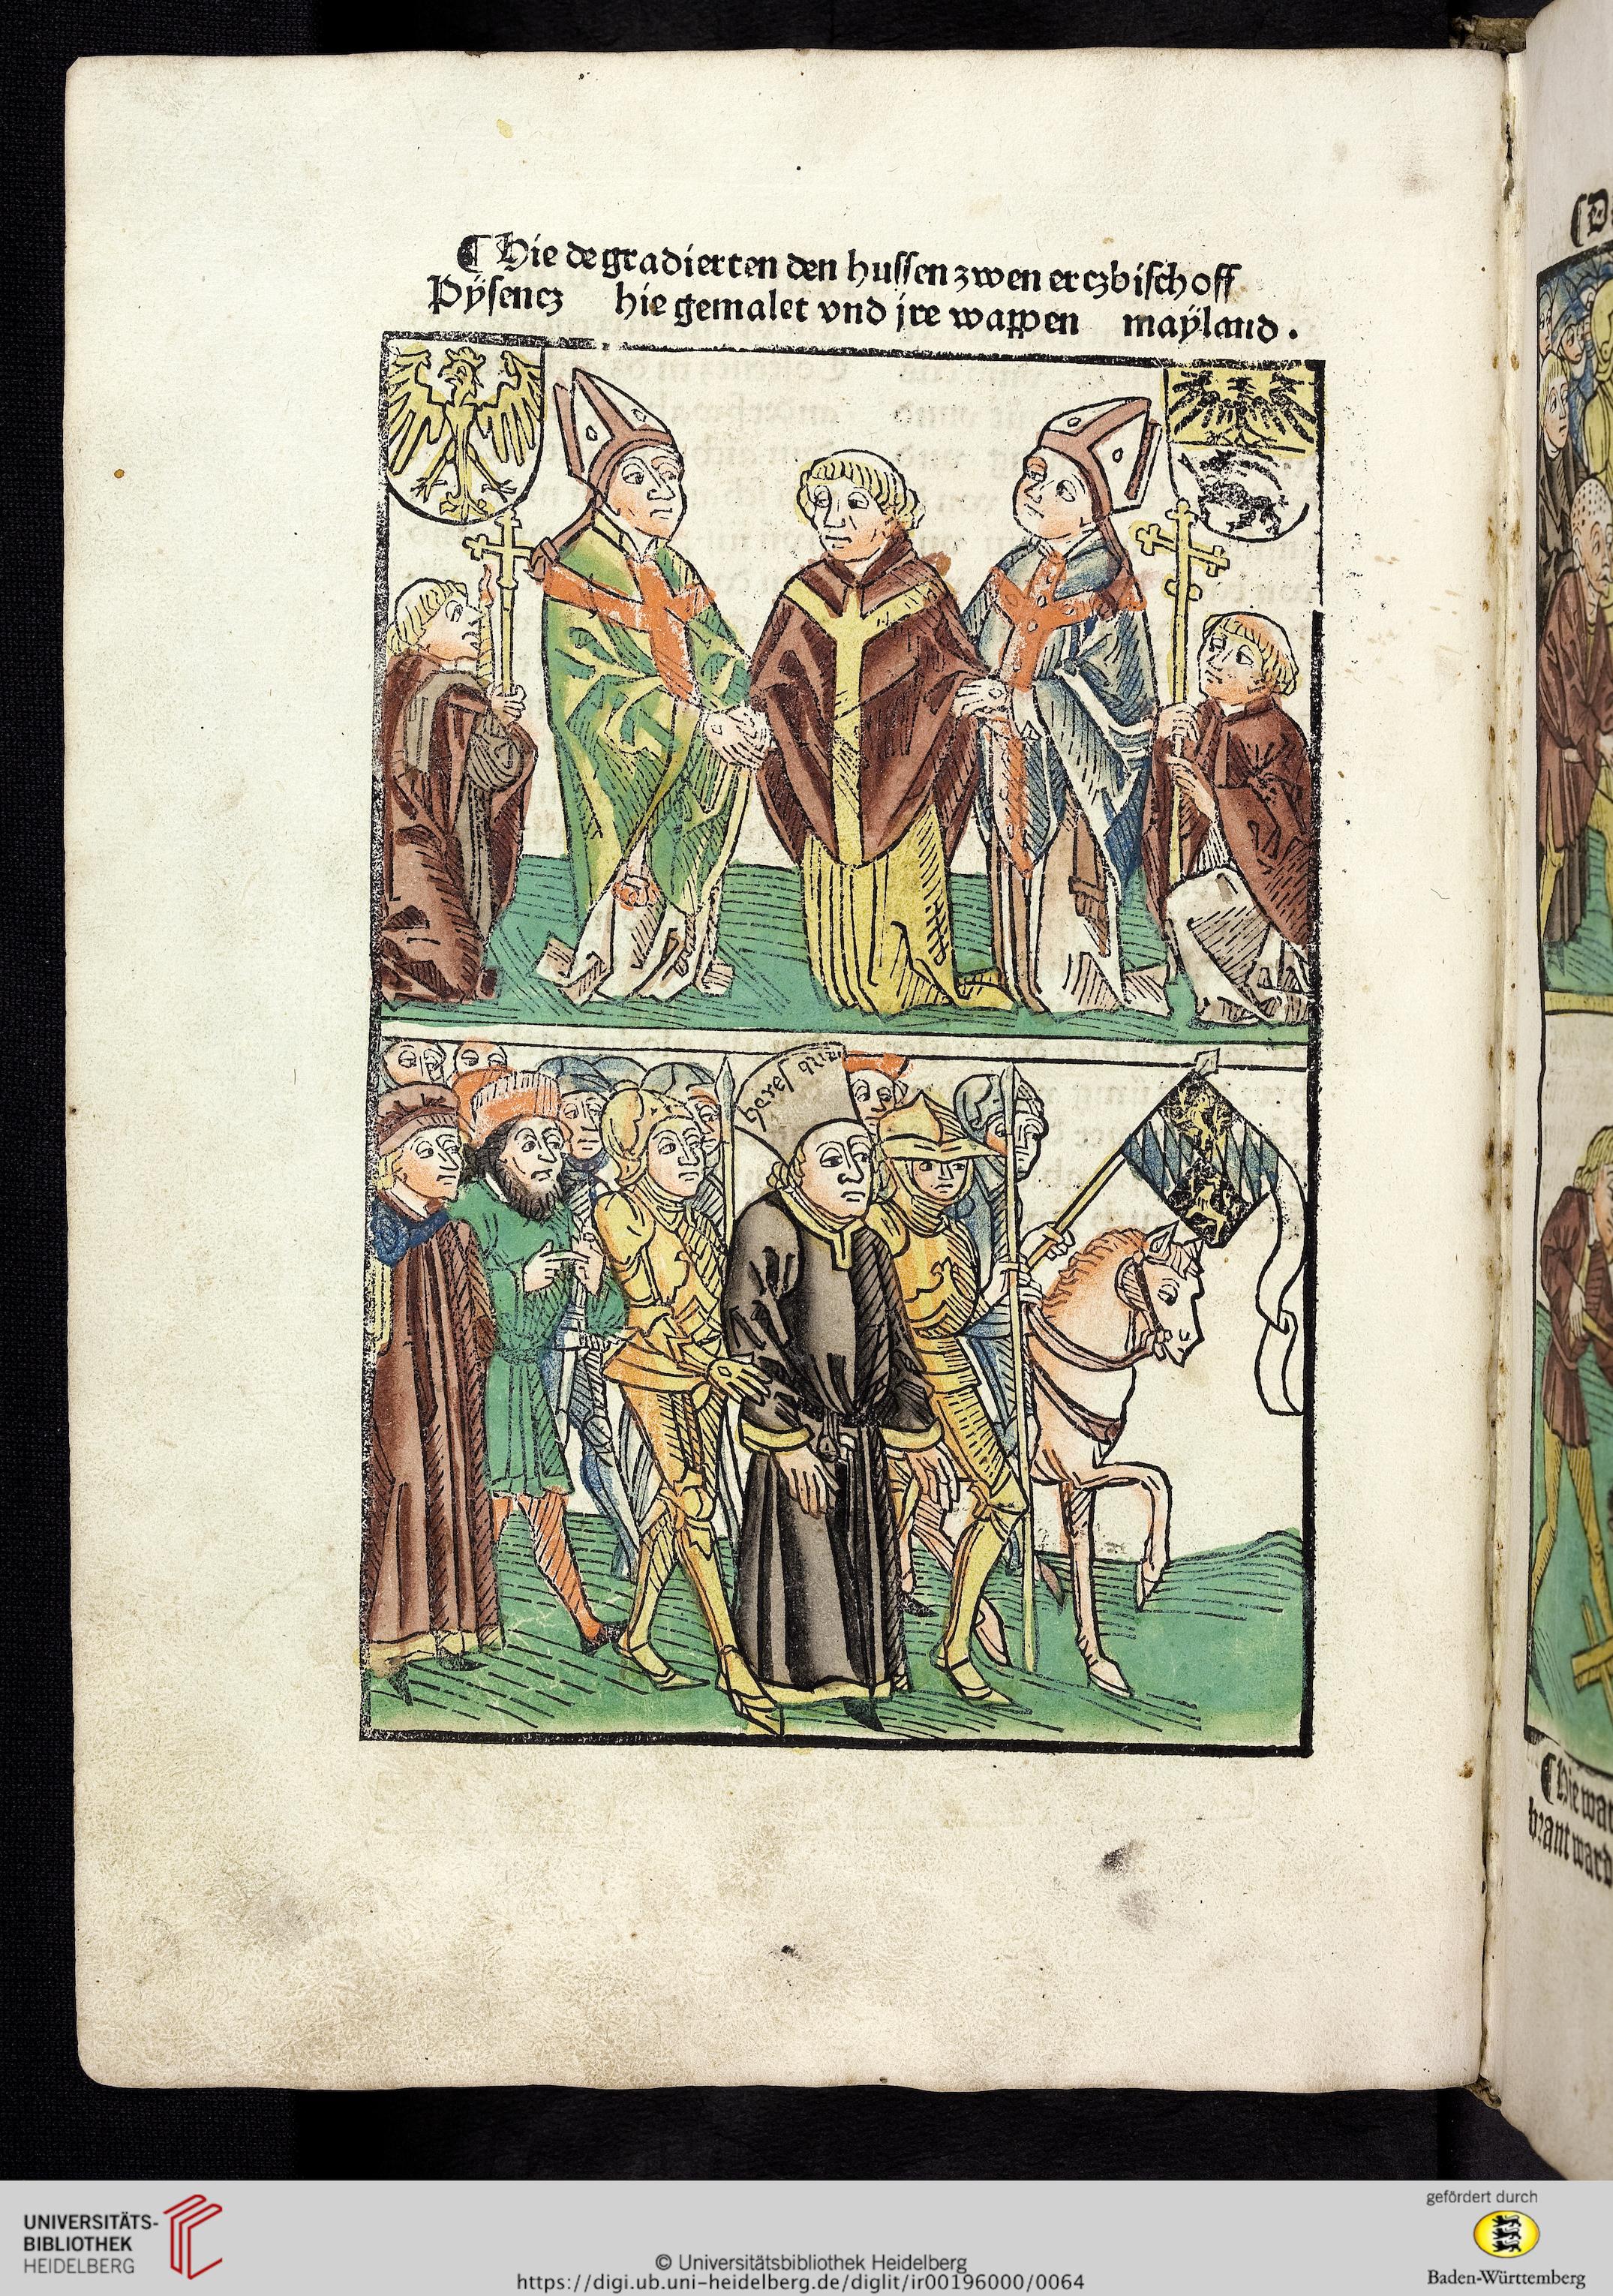 Hie degradierten den hussen zwen erczbischoff
Pÿsencz hie gemalet vnd jre wappen maÿland.
UNIVERSITÄTS-
BIBLIOTHEK
HEIDELBERG
© Universitätsbibliothek Heidelberg
https://digi.ub.uni-heidelberg.de/diglit/ir00196000/0064
gefördert durch
Baden-Württemberg